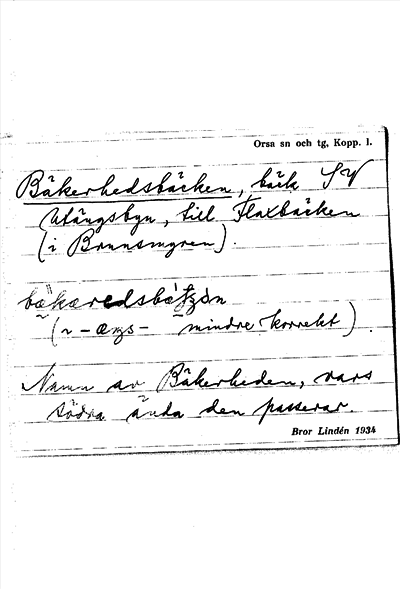 Orsa sn och tg, Kopp. l.
Bäkerhedsbäcken, bäck SV
Utängsbyn, till Flaxbäcken
(i Brunnsmyren).
(~ - – mindre korrekt).
Namn av Bäkerheden, vars
södra ända den passerar.
Bror Lindén 1934